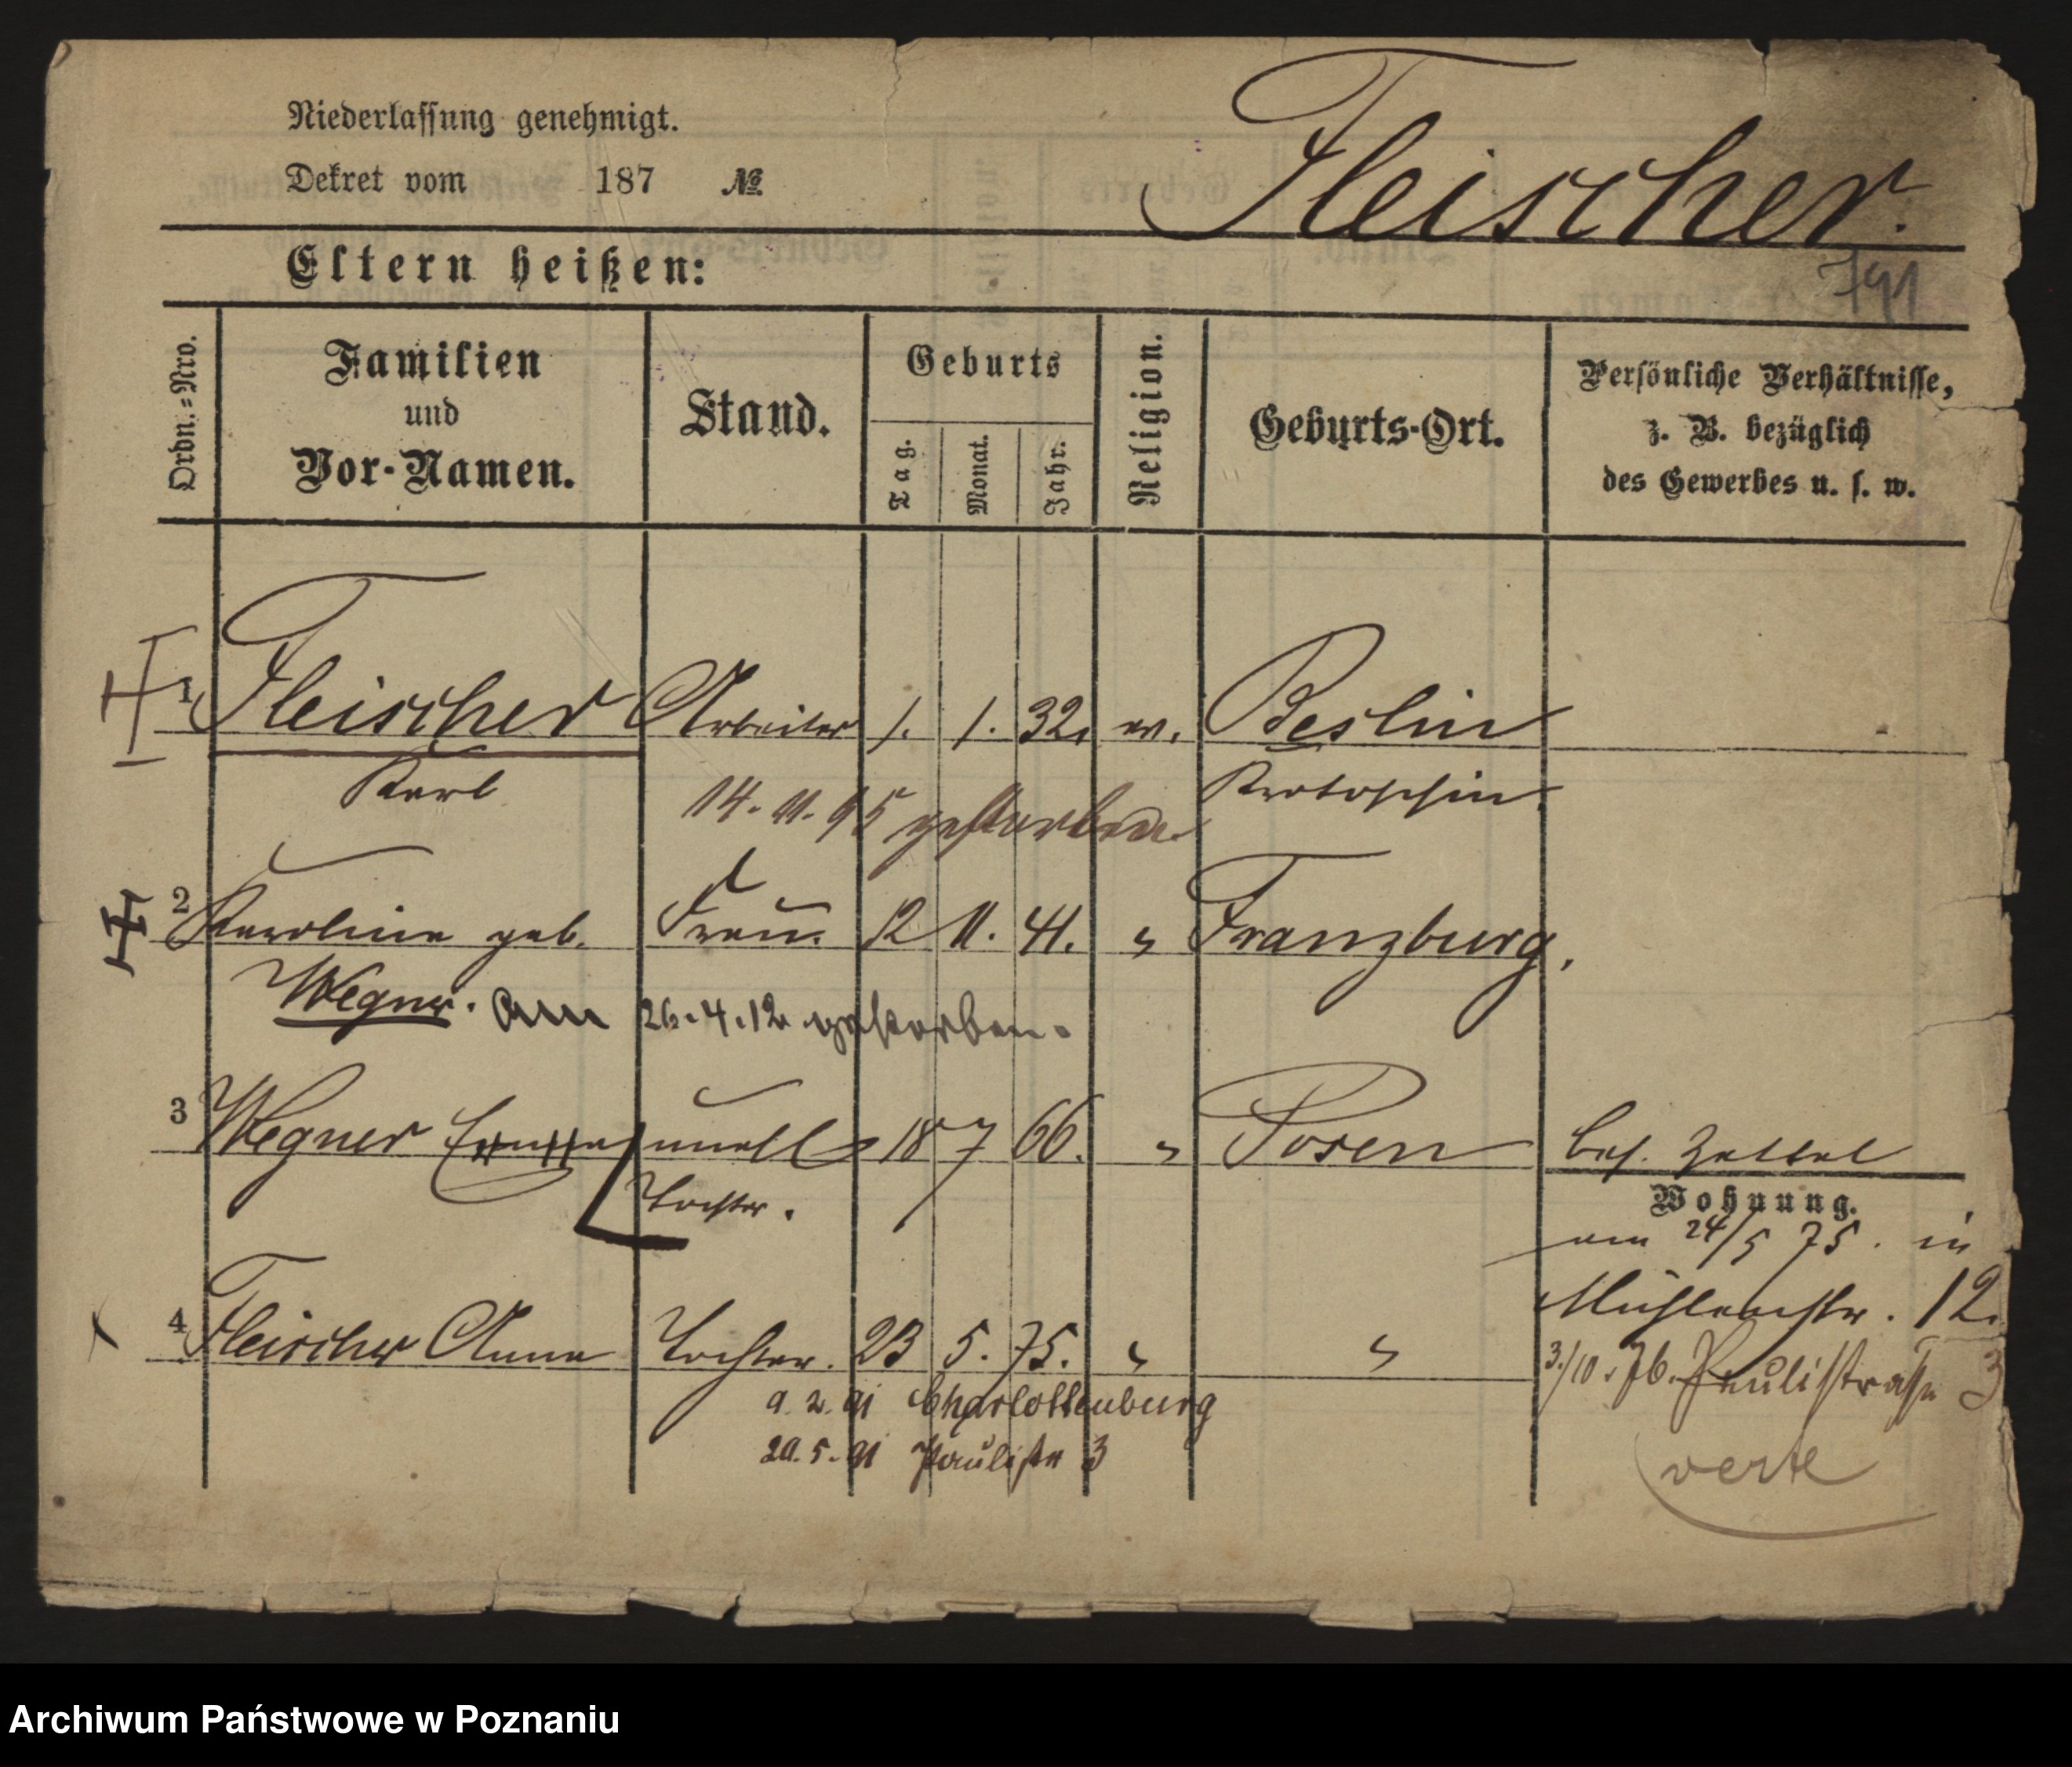 Niederlassung genehmigt.
Dekret vom 187 №
Fleischer.
791
Eltern heißen:
Ordn.-Nro.
Familien und Vor-Namen.
Stand.
Geburts
Tag.
Monat.
Jahr.
Religion.
Geburts-Ort.
Persönliche Verhältnisse,
z. B. bezüglich
des Gewerbes u. s. w.
1 Fleischer Arbeiter 1. 1. 32. ev. Beslin
Karl Krotoschin.
14. 11. 95 gestorben
2 Karoline geb. Frau. 12 11. 41. " Franzburg.
Wegner. am 26.4.12 gestorben.
3 Wegner unehl 18 7 66. " Posen bes. Zettel
Tochter.
Wohnung.
am 24/5 75. in
Mühlenstr. 12.
4 Fleischer Anna Tochter. 23 5. 75. " "
3./10. 76. Paulistraße 3
9. 2. 91 Charlottenburg
20. 5. 91 Paulistr 3
verte
Archiwum Państwowe w Poznaniu